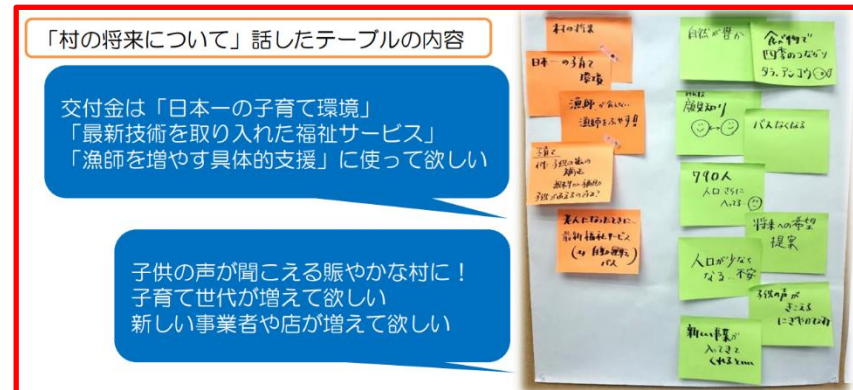 「村の将来について」話したテーブルの内容
交付金は「日本一の子育て環境」
「最新技術を取り入れた福祉サービス」
「漁師を増やす具体的支援」に使って欲しい
子供の声が聞こえる賑やかな村に！
子育て世代が増えて欲しい
新しい事業者や店が増えて欲しい
村の将来
日本一の子育て
環境
漁師が少ない
漁師をふやす!!
子育て
老人になったときに
最新福祉サービス
バス
自然が豊か
食べ物で
四季のつながり
タラ、アンコウ
顔見知り
バスなくなる
790人
人口さらに
へってる
将来への希望
提案
人口が少なく
なる 不安
子供の声が
きこえる
にぎやかな村
新しい事業が
入ってきて
くれると